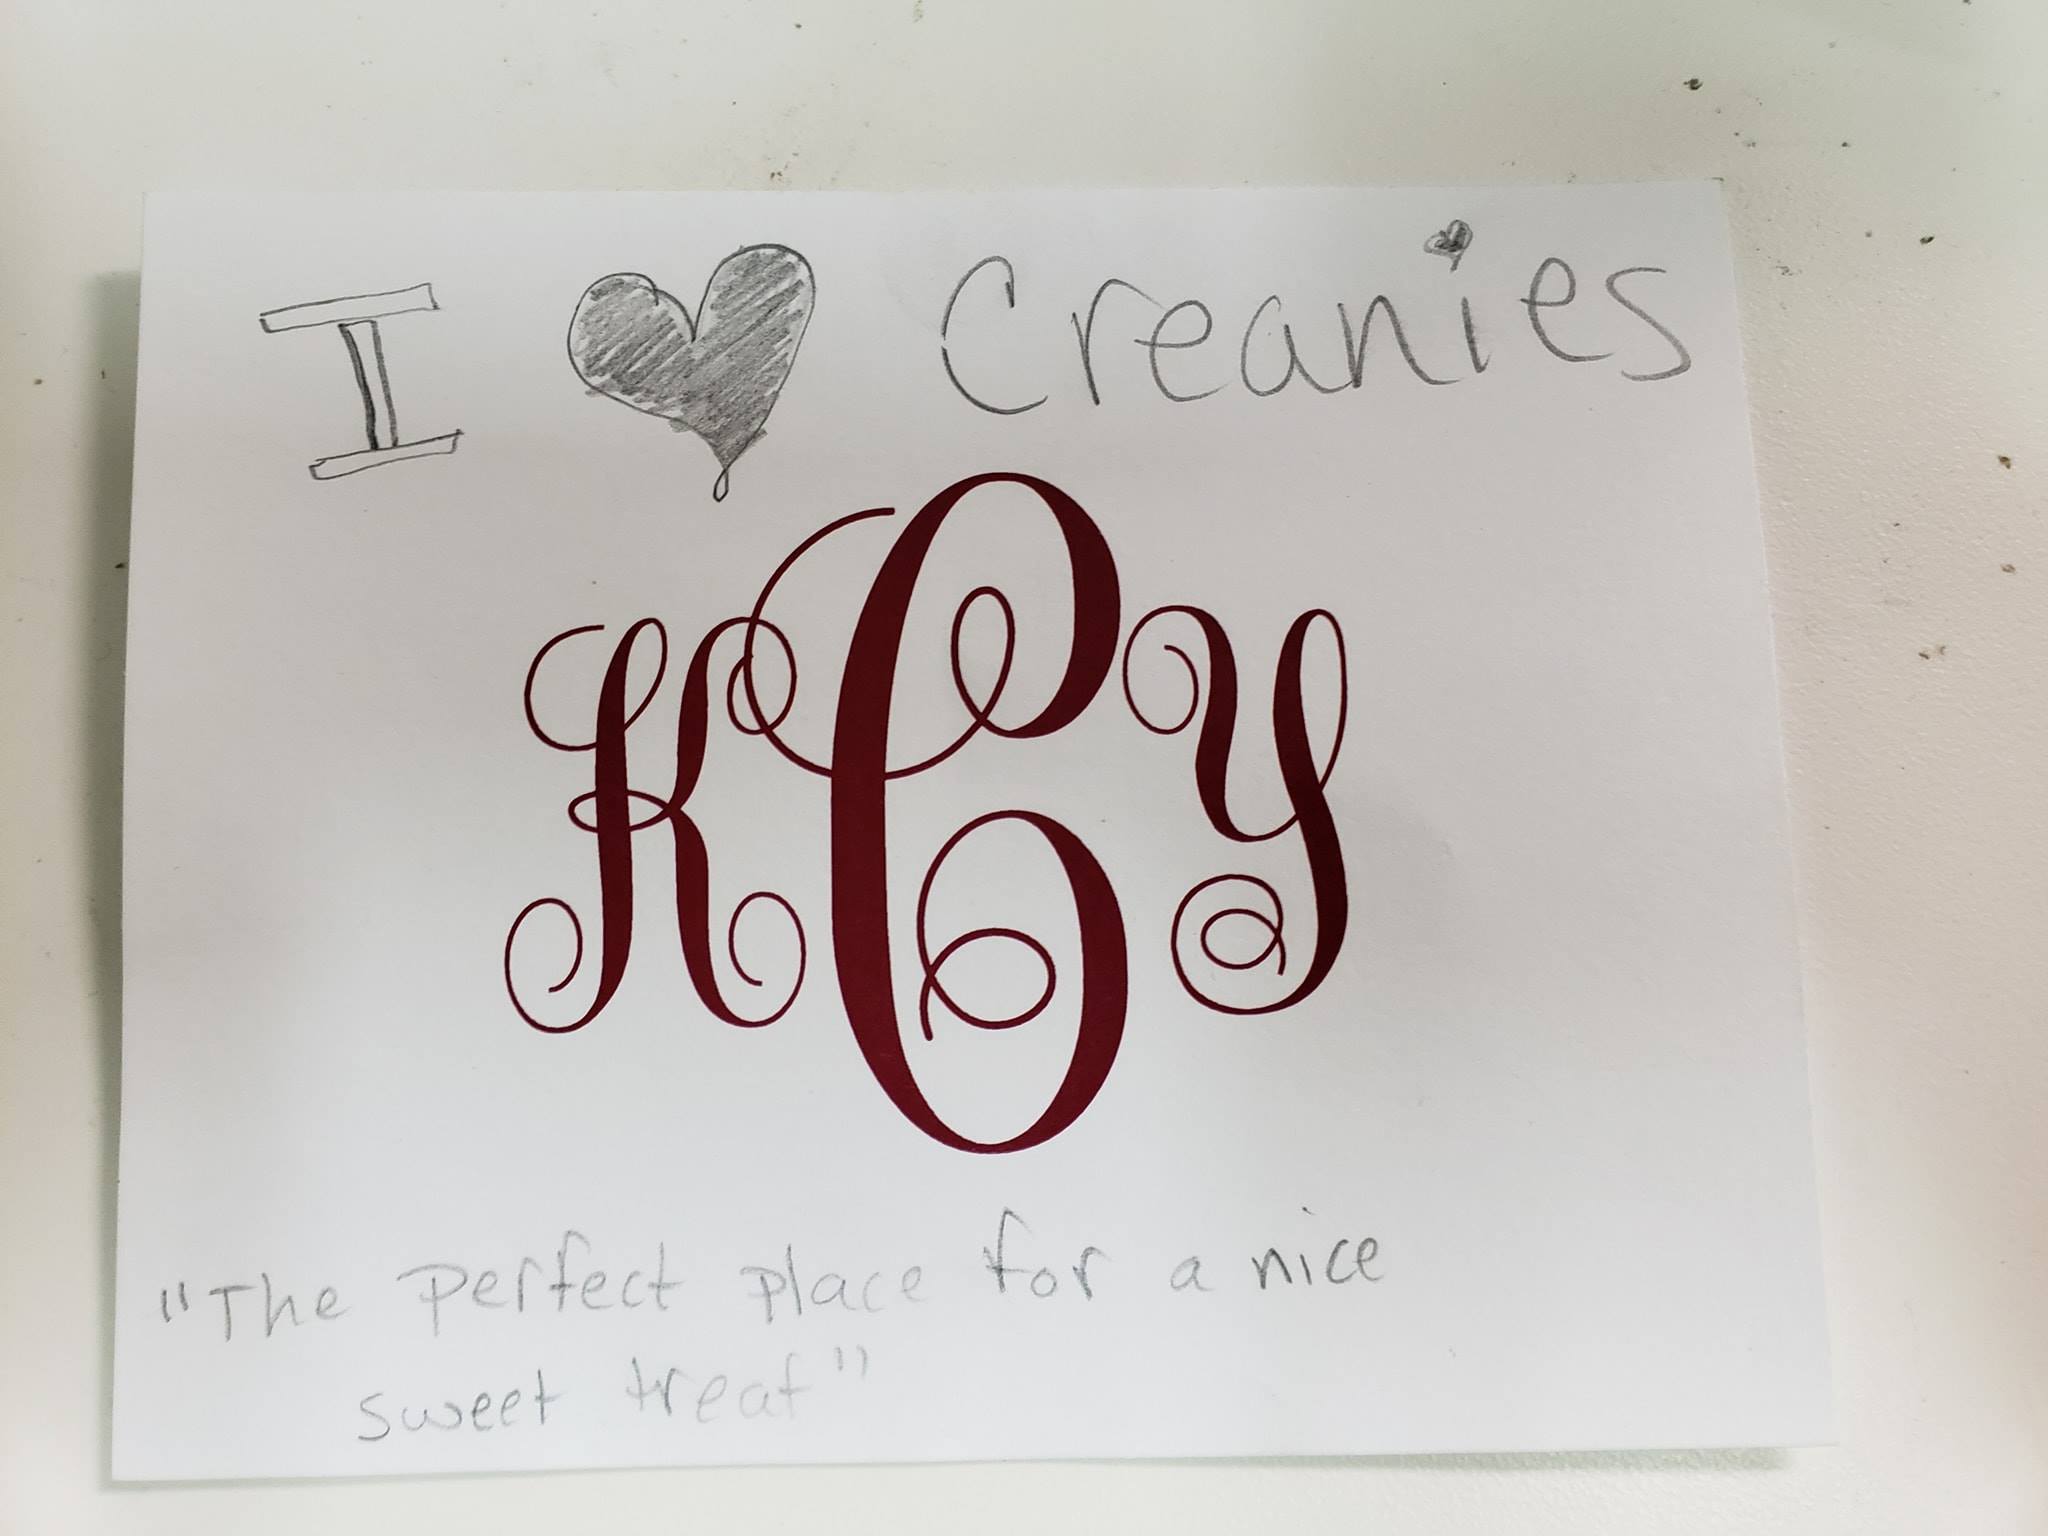 I ♥ Creanies
KCY
"The perfect place for a nice
sweet treat"